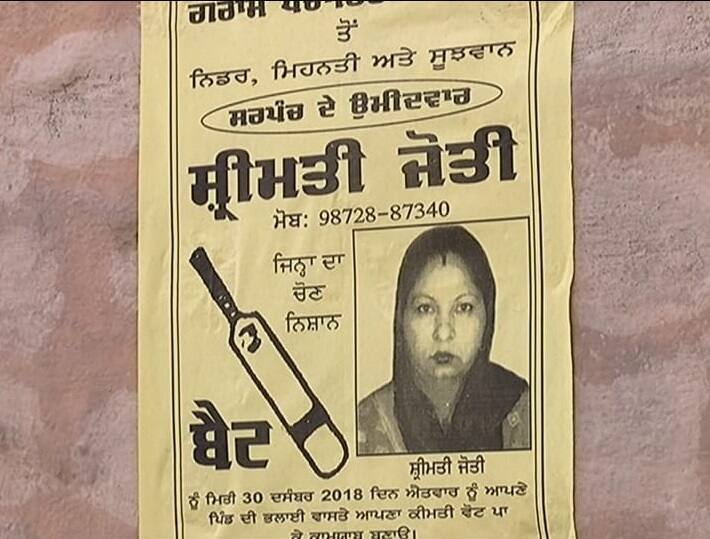 ਗਰਾਮ
ਤੋਂ
ਨਿਡਰ, ਮਿਹਨਤੀ ਅਤੇ ਸੂਝਵਾਨ
ਸਰਪੰਚ ਦੇ ਉਮੀਦਵਾਰ
ਸ਼੍ਰੀਮਤੀ ਜੋਤੀ
ਮੋਬ: 98728-87340
ਜਿਨ੍ਹਾ ਦਾ
ਚੋਣ
ਨਿਸ਼ਾਨ
ਬੈਟ
ਸ਼੍ਰੀਮਤੀ ਜੋਤੀ
ਨੂੰ ਮਿਤੀ 30 ਦਸੰਬਰ 2018 ਦਿਨ ਐਤਵਾਰ ਨੂੰ ਆਪਣੇ
ਪਿੰਡ ਦੀ ਭਲਾਈ ਵਾਸਤੇ ਆਪਣਾ ਕੀਮਤੀ ਵੋਟ ਪਾ
ਕੇ ਕਾਮਯਾਬ ਬਣਾਓ।